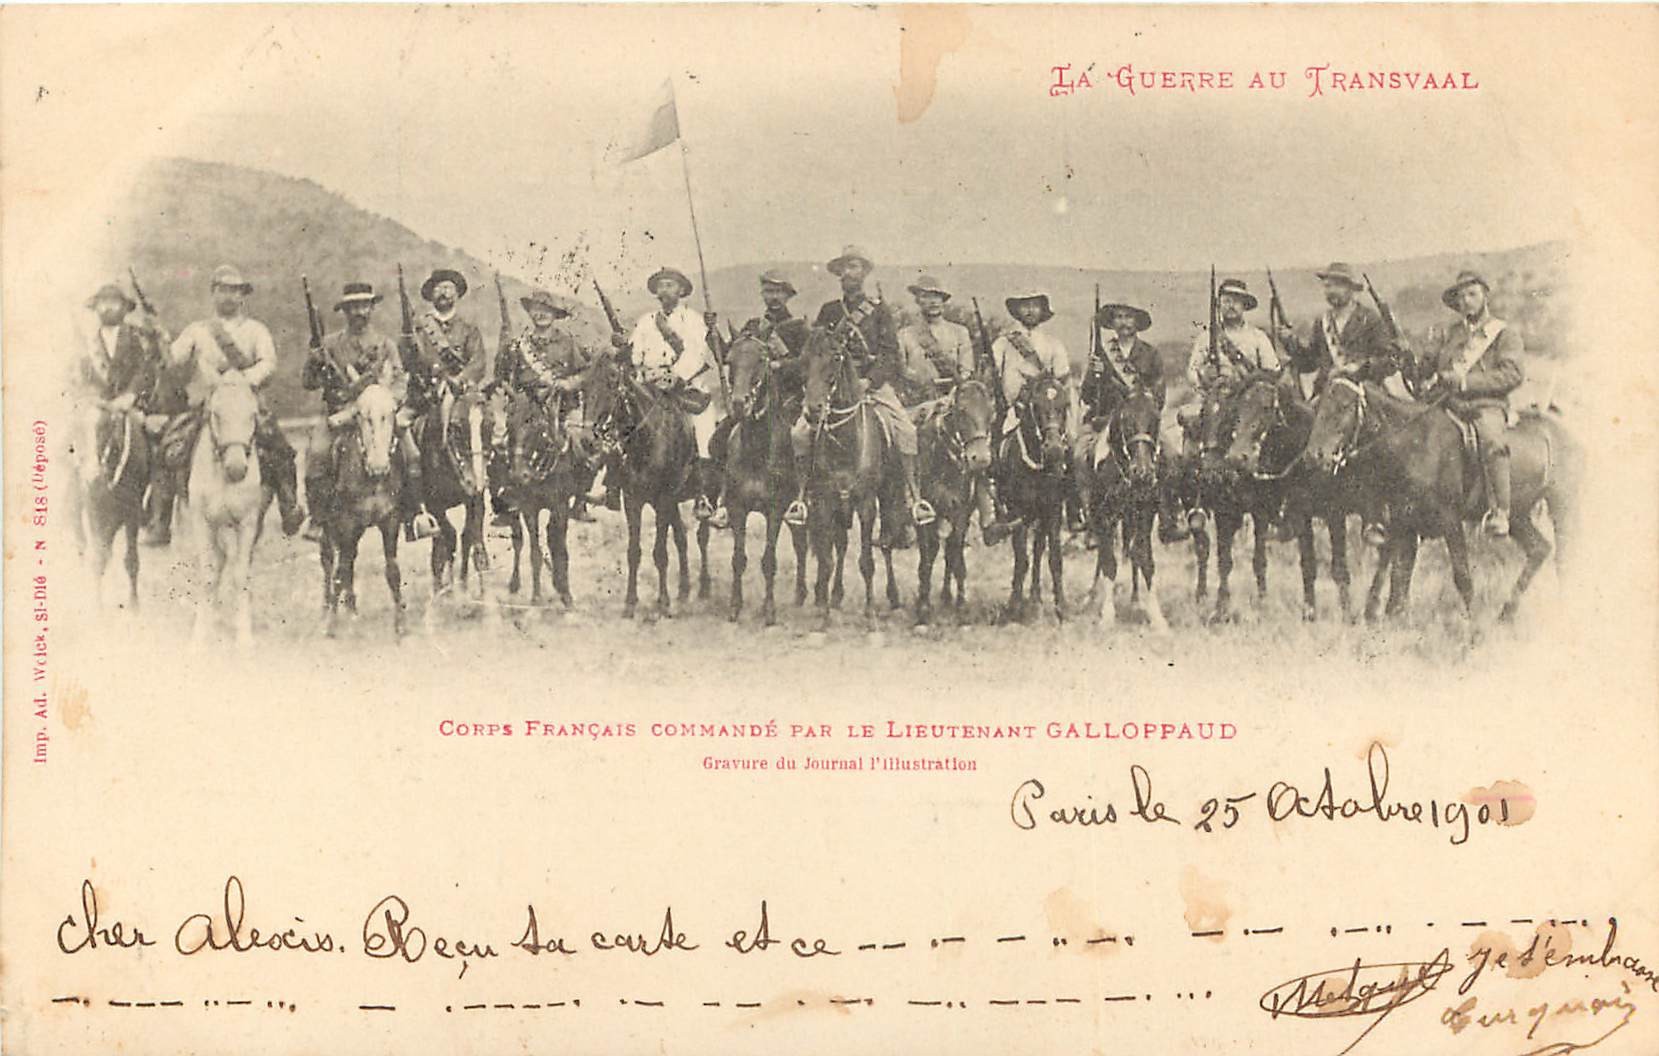 LA GUERRE AU TRANSVAAL
Imp. Ad. Weick, St-Dié - N 818 (Déposé)
CORPS FRANÇAIS COMMANDÉ PAR LE LIEUTENANT GALLOPPAUD
Gravure du Journal l'Illustration
Paris le 25 Octobre 1901
Cher Alexis. Reçu ta carte et ce
je t'embrasse